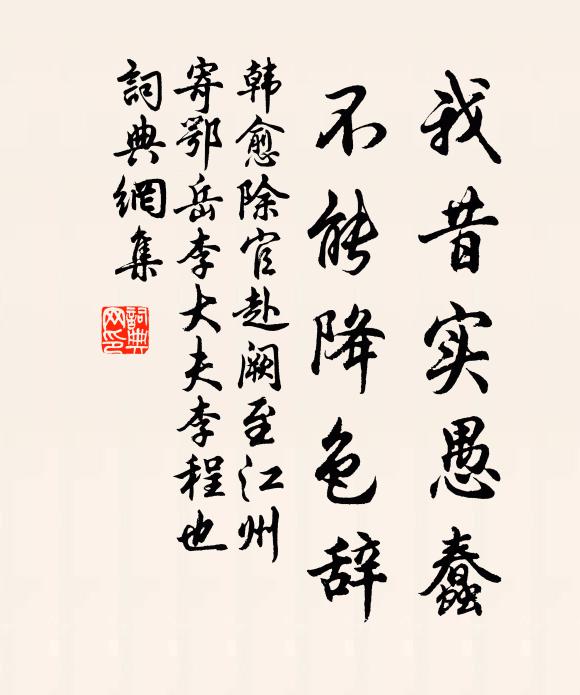 我昔实愚蠢
不能降色辞
韩愈除官赴阙至江州
寄鄂岳李大夫李程也
词典網集
詞典
网印